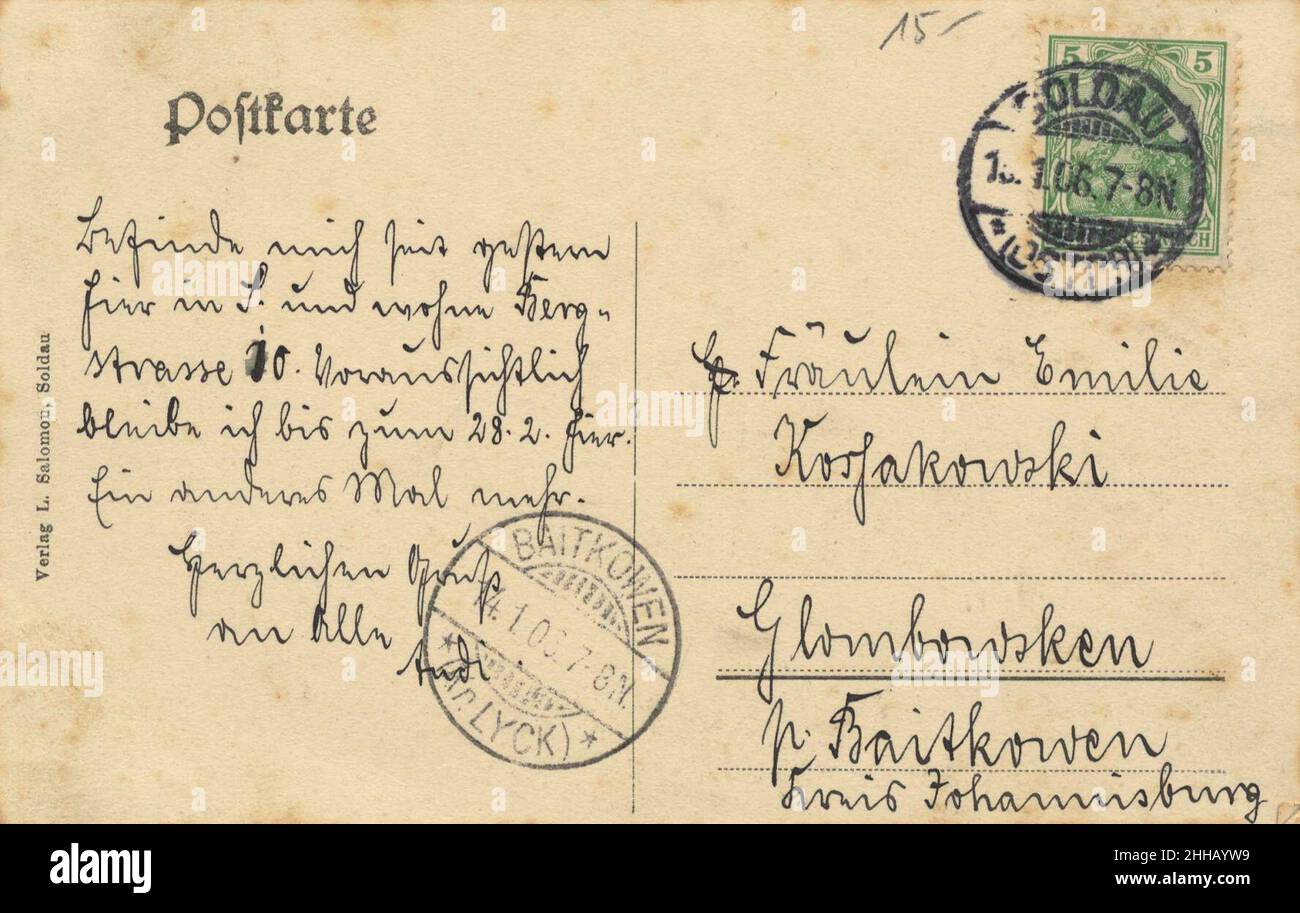 15-
Postkarte
5 5
SOLDAU
1 .1.06.7-8N.
*(OSTPR.)*
Befinde mich seit gestern
hier in S. und wohne Berg-
strasse 10. Voraussichtlich
bleibe ich bis zum 28.2. hier.
Ein anderes Mal mehr.
Herzlichen Gruß
an Alle
Verlag L. Salomon, Soldau
BAITKOWEN
14.1.06.7-8N.
* (Kr. LYCK) *
Fräulein Emilie
Kossakowski
Glombowsken
p. Baitkowen
Kreis Johannisburg
alamy
Image ID: 2HHAYW9
www.alamy.com